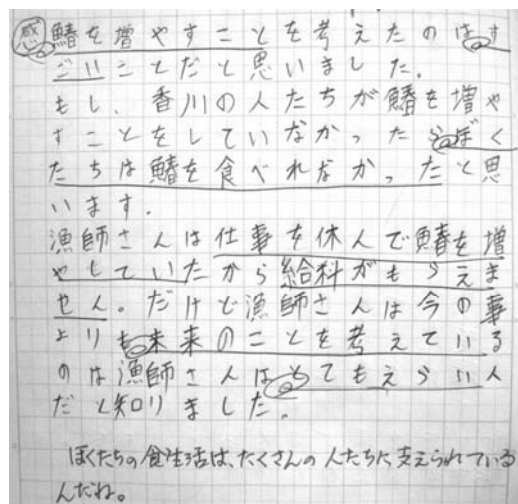 感 鰆を増やすことを考えたのはす
ごいことだと思いました。
もし、香川の人たちが鰆を増や
すことをしていなかったらぼく
たちは鰆を食べれなかったと思
います。
漁師さんは仕事を休んで鰆を増
やしていたから給料がもらえま
せん。だけど漁師さんは今の事
よりも未来のことを考えている
のは漁師さんはとてもえらい人
だと知りました。
ぼくたちの食生活は、たくさんの人たちに支えられている
んだね。